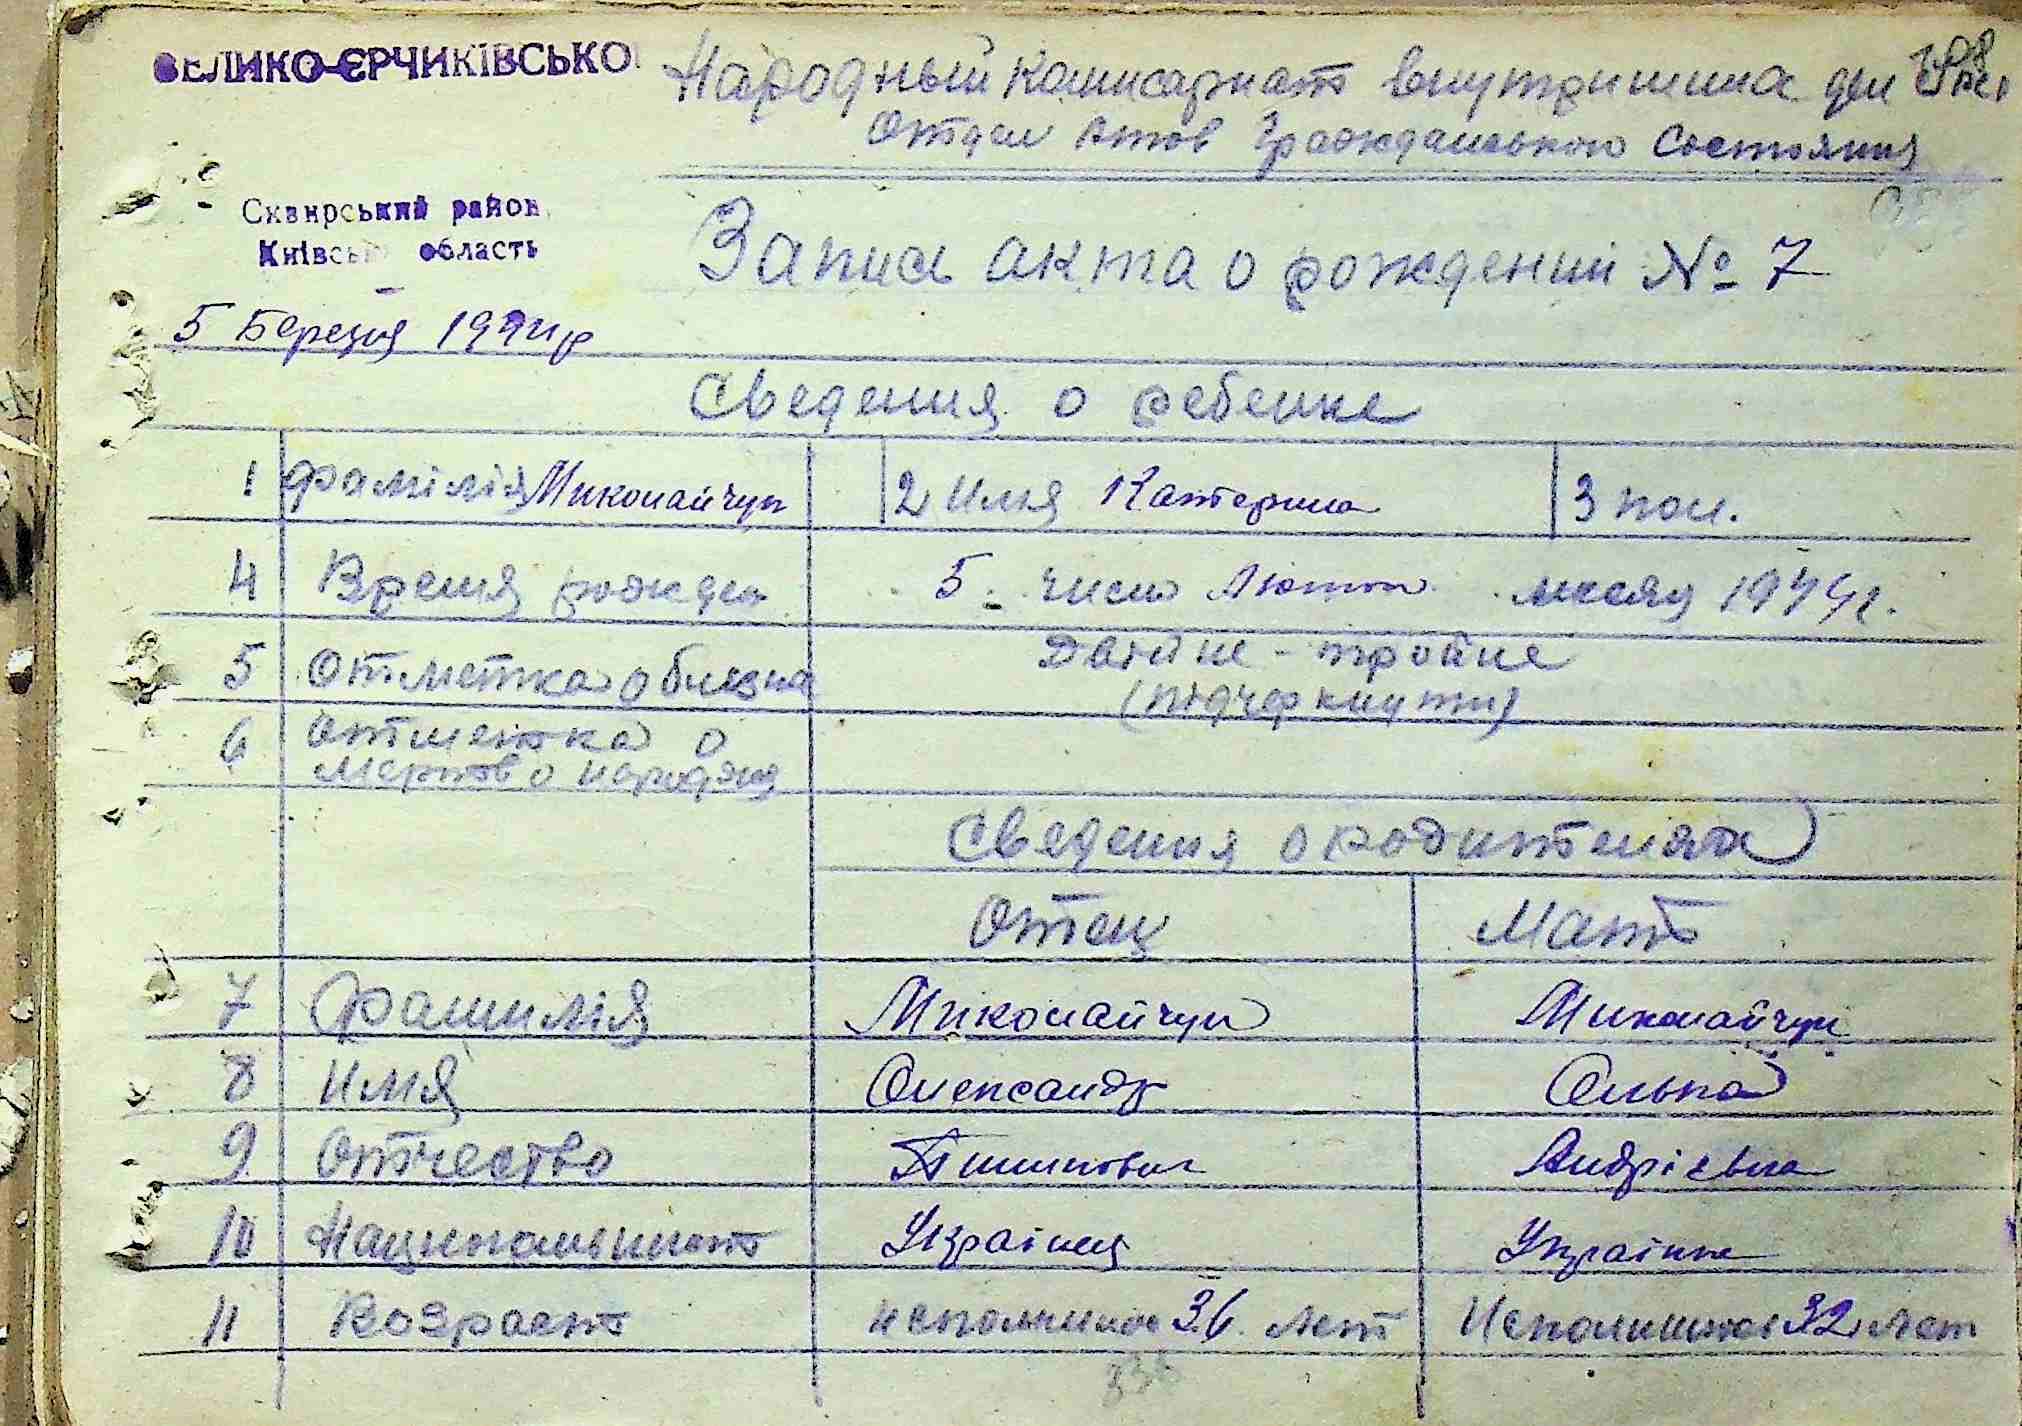 ВЕЛИКО-ЄРЧИКІВСЬКО
Народный комисариат внутришних дел
Отдел Актов Гражданського Состояния
Сквирський район,
Київсько область
Запись акта о рождении № 7
5 Березня 1944 р
Сведения о ребенке
1 Фамілія Миколайчук 2 Имя Катерина 3 пол.
4 Время рожден 5 число Лютого месяц 1944 г.
5 Отметка о близна Двійне - тройне
(підчеркнути)
6 Отметка о
мертво народжен
Сведения о родителях
Отец Мать
7 Фамилія Миколайчук Миколайчук
8 Имя Олександр Ольга
9 Отчество Андріевна
10 Национальность Українец Українка
11 Возраст Исполнилос 36 лет Исполнилос 32 лет